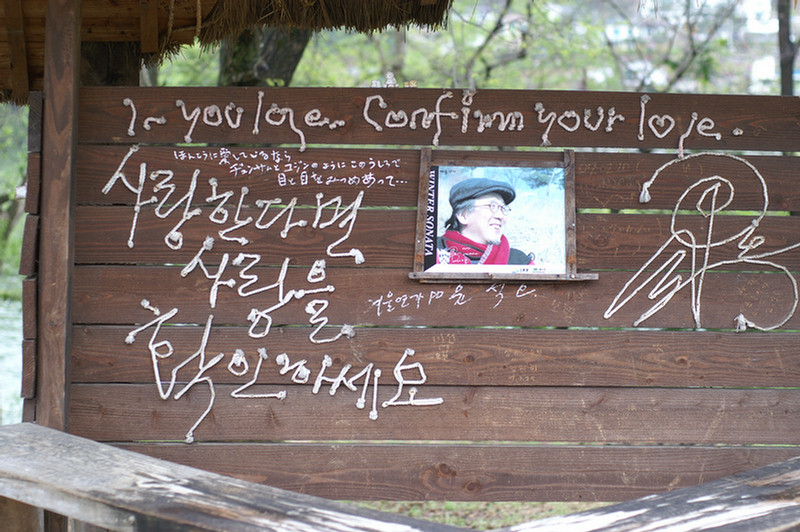 If you love. Confirm your love.
ほんとうに愛しているなら
チュンサンとユジンのように このうしろで
目と目をみつめあって…
사랑한다면
사랑을
확인하세요
WINTER SONATA
겨울연가 PD 윤석호